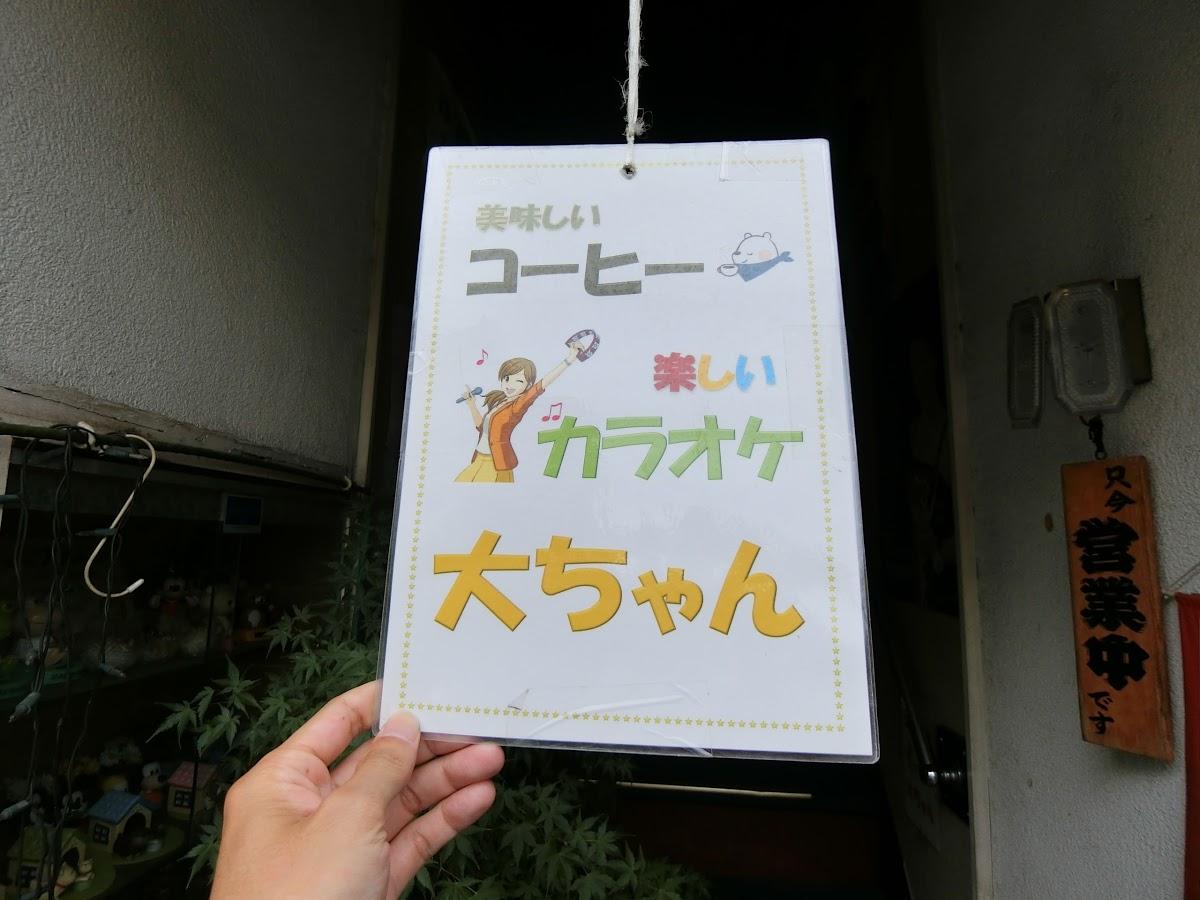 美味しい
コーヒー
楽しい
カラオケ
大ちゃん
只今
営業中
です